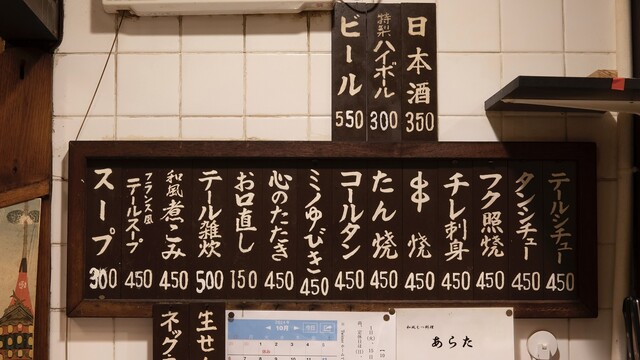 日本酒 350
特製ハイボール 300
ビール 550
テールシチュー 450
タンシチュー 450
フク照焼 450
チレ刺身 450
串焼 450
たん焼 450
コールタン 450
ミノゆびき 450
心のたたき 450
お口直し 150
テール雑炊 500
和風煮こみ 450
フランス風テールスープ 450
スープ 300
生せん
ネック
10月
あらた